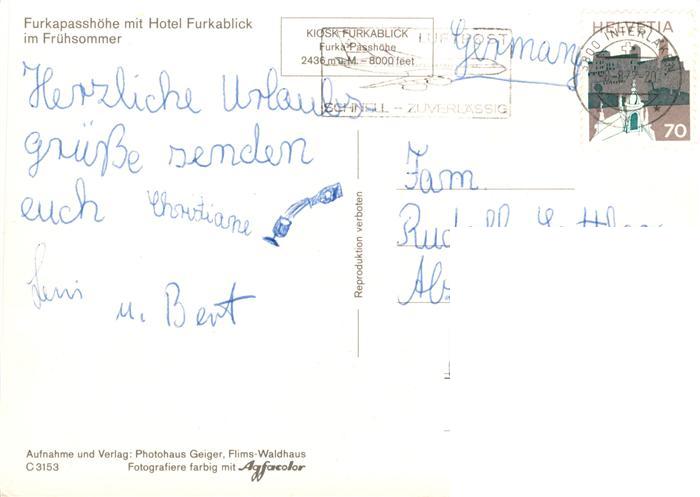 Furkapasshöhe mit Hotel Furkablick
im Frühsommer
KIOSK FURKABLICK
Furka-Passhöhe
2436 m ü. M. – 8000 feet
LUFTPOST
SCHNELL – ZUVERLÄSSIG
Germany
HELVETIA
3800 INTERLA
70
Herzliche Urlaubs
grüße senden
euch Christiane
u. Bert
Fam.
Reproduktion verboten
Aufnahme und Verlag: Photohaus Geiger, Flims-Waldhaus
C 3153 Fotografiere farbig mit Agfacolor